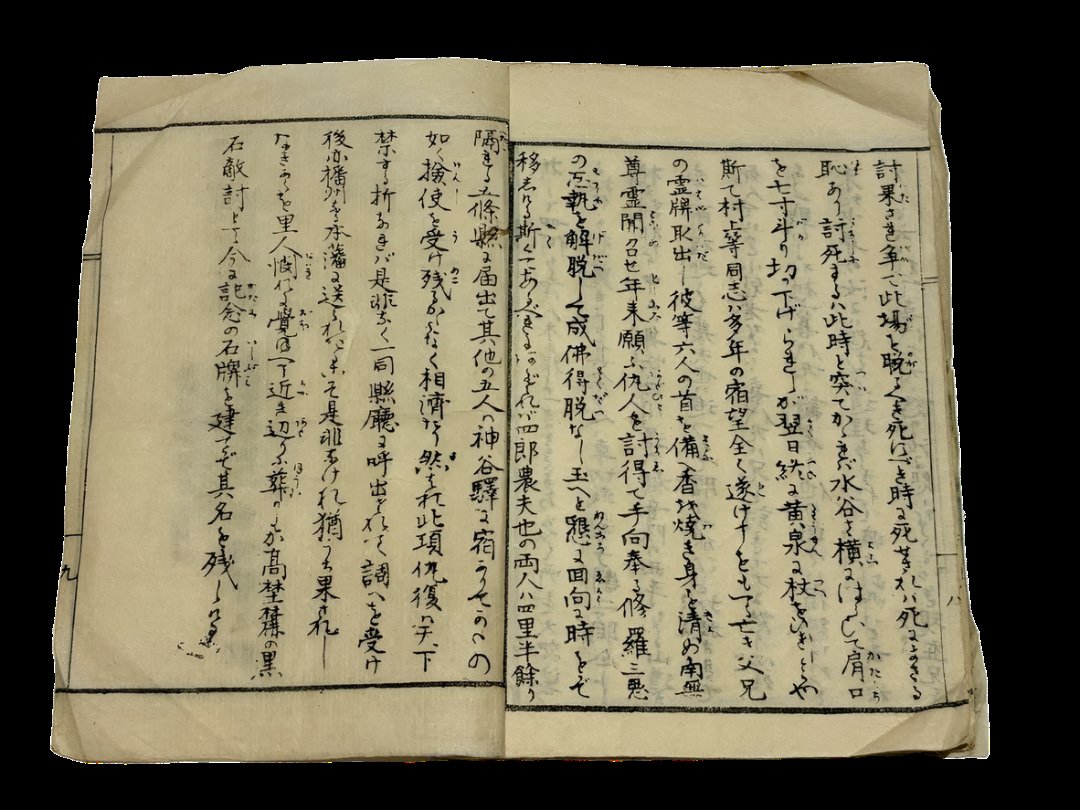 討果さる争で此場を脱るべき死にべき時に死せされハ死にまさる
恥あり討死するハ此時と突てかゝれバ水谷を横にはらひて肩口
を七寸斗り切下げられしが翌日終に黄泉に杖をひきしとや
斯て村上等同志ハ多年の宿望全く遂けけれともてる亡き父兄
の霊牌取出し彼等六人の首を備へ香を焼き身を清め南無
尊霊聞召せ年来願ふ仇人を討得て手向奉る修羅三悪
の忘執を解脱して成佛得脱なし玉へと懇に回向に時をぞ
移しける斯くてあるべきにあらざれバ四郎農夫也の両人ハ四里半餘り
隔きる五條縣に届出て其他の五人ハ神谷驛に宿りてのこの
如く検使を受け残るかたなく相濟たり然るれ此項仇復ハ天下
禁する折なれバ是非なく一同縣廳に呼出されて調べを受け
後亦播州本藩に送られたりこそ是非なけれ猶うち果されし
なきからを里人憐れに覺え丁近き辺りに葬りしが高埜麓の黒
石敵討とて今に記念の石牌を建てゞ其名を残しける
八
九